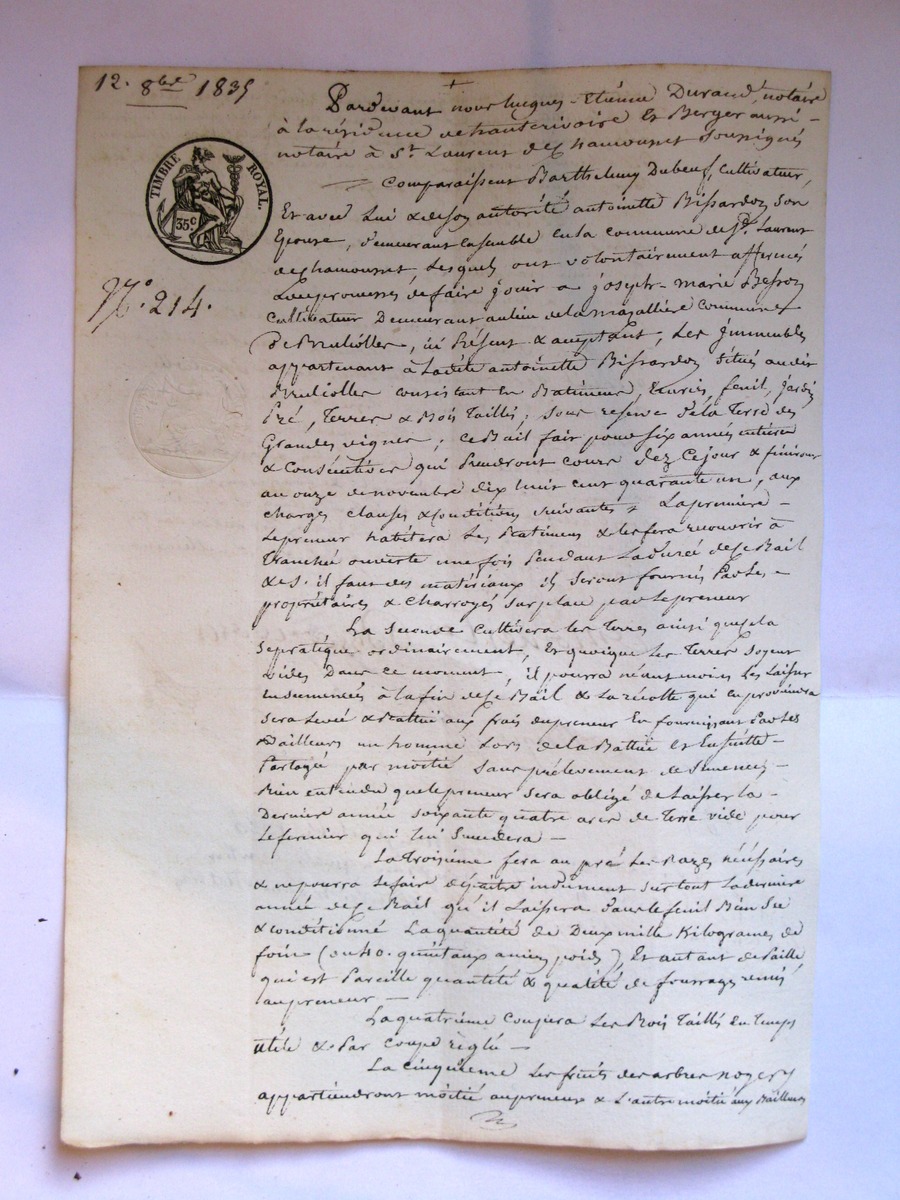 12. 8bre 1835
TIMBRE ROYAL.
35c
N.° 214.
Pardevant nous hugues-Etienne Durand, notaire
à la résidence de hauterivoire Et Berger aussi
notaire à St. Laurent de Chamousset soussignés
Comparaissent Barthelemy Dubeuf, Cultivateur,
Et avec Lui & de son autorité antoinette Bissardon son
Epouse, demeurant Ensemble en la commune de St. Laurent
de Chamousset, Lesquels ont volontairement affermés
avec promesses de faire jouir a joseph-marie Besson
Cultivateur Demeurant au lieu de la magallière Commune
De Brullioles, ici Présent & acceptant, Les immeubles
appartenant à Ladite antoinette Bissardon situés audit
Brullioles consistant en Batiment, Ecurie, fenil, jardin
Pré, Terres & Bois Taillis, sous réserve de la Terre des
Grandes vignes; ce Bail fait pour six années entieres
& Consécutives qui Prendront cours dez Ce jour & finiront
au onze de novembre dix huit cent quarante un, aux
charges clauses & conditions suivantes La premiere
Le preneur habitera Les Batimens & les fera recouvrir à
Tranchée ouverte une fois Pendant La durée de Ce Bail
& s'il faut des matériaux ils seront fournis Par Les
propriétaires & Charroyés sur place par le preneur
La seconde Cultivera les Terres ainsi que cela
se pratique ordinairement, Et quoique les Terres soyent
vides Dans ce moment, il pourra néantmoins Les Laisser
ensemencées à la fin de Ce Bail & La récolte qui en proviendra
sera Levée & Battue aux frais du preneur En fournissant Par Les
Bailleurs un homme Lors de la Battue Et Ensuitte
Partagée par moitié sans prélevement de semences
Bien entendu que le preneur sera obligé de Laisser la
Derniere année soixante quatre ares de Terre vide pour
Le fermier qui lui succedera
La troisieme fera au pré Les Razes nécéssaires
& ne pourra Le faire dépaitre indument surtout La derniere
année de Ce Bail qu'il Laissera dans le fenil Bien Sec
& conditionné La quantité de Deux mille Kilogrames de
foin (ou 40. quintaux ancien poids), Et autant de Paille
qui est Pareille quantité & qualité de fourrages remis
au preneur
La quatrieme coupera Les Bois Taillis En Temps
utile & Par coupe réglée
La cinquieme Les fruits des arbres noyers
appartiendront moitié au preneur & L'autre moitié aux Bailleurs